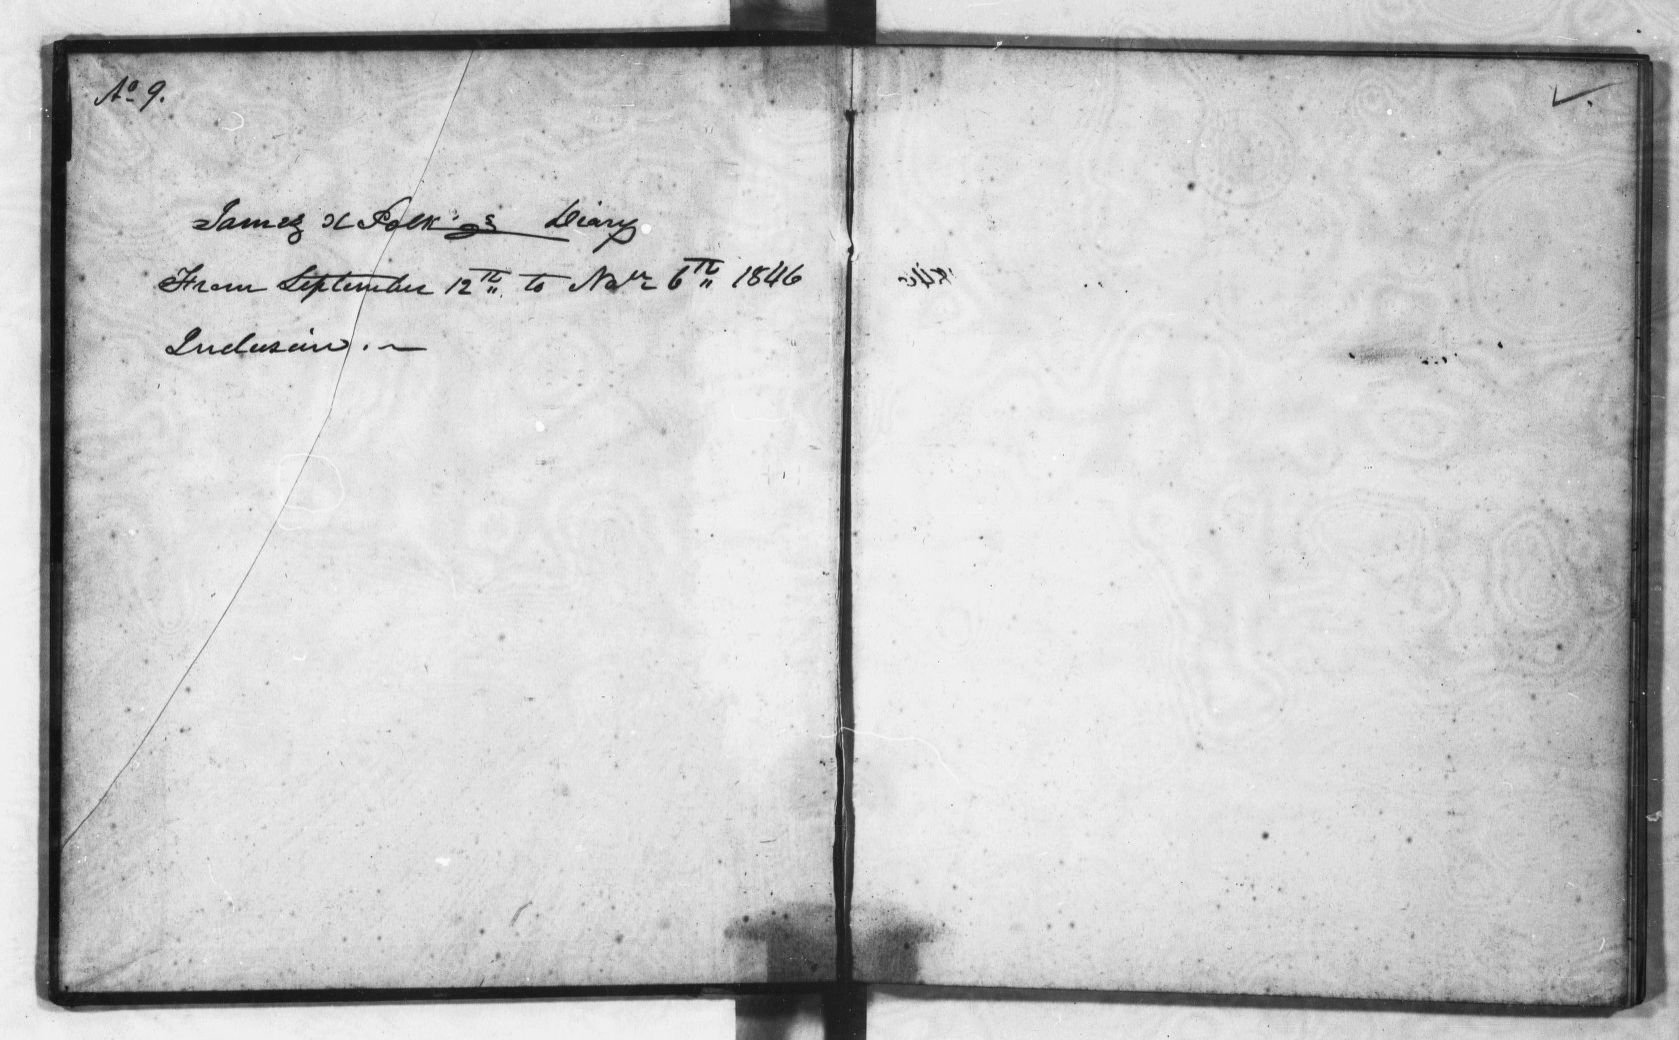 No 9.
James K Polk's Diary
From September 12th to Novr 6th 1846
Inclusive. —